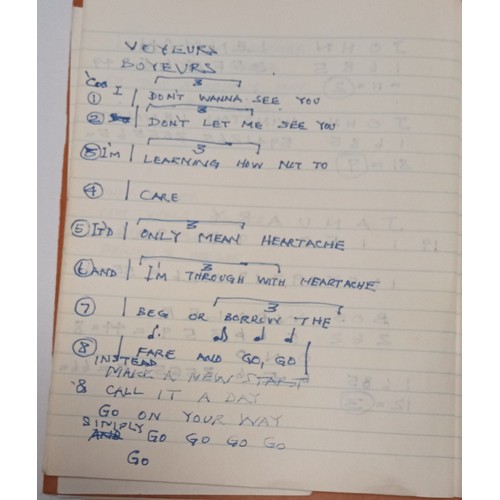 VOYEURS
BOYEURS
3
'COS I
① | DON'T WANNA SEE YOU
3
② | DON'T LET ME SEE YOU
3
③ I'M | LEARNING HOW NOT TO
④ | CARE
3
⑤ IT'D | ONLY MEAN HEARTACHE
3
⑥ AND | I'M THROUGH WITH HEARTACHE
3
⑦ | BEG OR BORROW THE
⑧ | FARE AND GO, GO |
INSTEAD
MAKE A NEW START
& CALL IT A DAY
GO ON YOUR WAY
SIMPLY
AND GO GO GO GO
GO